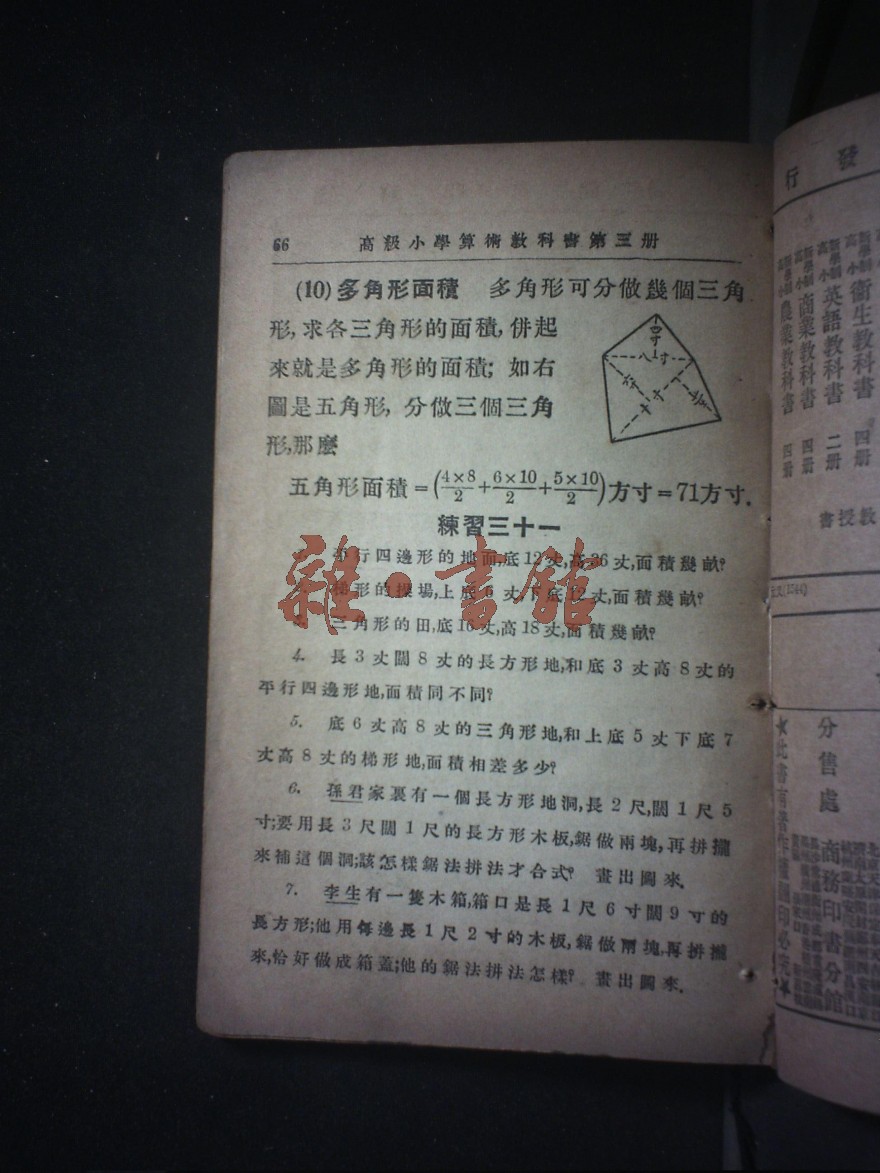 66 高級小學算術教科書第三册
(10)多角形面積 多角形可分做幾個三角
形,求各三角形的面積,併起
來就是多角形的面積;如右
圖是五角形,分做三個三角
形,那麽
四寸
八寸
五角形面積=(4×8/2+6×10/2+5×10/2)方寸=71方寸.
練習三十一
平行四邊形的地面,底12丈,高36丈,面積幾畝?
梯形的操場,上底6丈下底12丈,面積幾畝?
3. 三角形的田,底16丈,高18丈,面積幾畝?
4. 長3丈闊8丈的長方形地,和底3丈高8丈的
平行四邊形地,面積同不同?
5. 底6丈高8丈的三角形地,和上底5丈下底7
丈高8丈的梯形地,面積相差多少?
6. 孫君家裏有一個長方形地洞,長2尺,闊1尺5
寸;要用長3尺闊1尺的長方形木板,鋸做兩塊,再拼攏
來補這個洞;該怎樣鋸法拼法才合式? 畫出圖來.
7. 李生有一隻木箱,箱口是長1尺6寸闊9寸的
長方形;他用每邊長1尺2寸的木板,鋸做兩塊,再拼攏
來,恰好做成箱蓋;他的鋸法拼法怎樣? 畫出圖來.
雜·書館
發行
新學制高小衞生教科書 四册
新學制高小英語教科書 二册
新學制高小商業教科書 四册
新學制高小農業教科書 四册
教授書
(1544)
分售處
商務印書分館
★此書有著作權翻印必究★